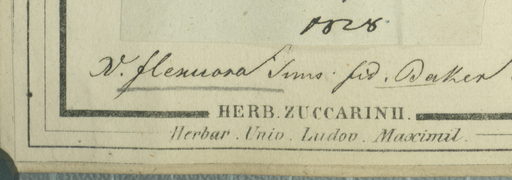 1828
N. flexuosa Sims fid. Baker
HERB. ZUCCARINII.
Herbar. Univ. Ludov. Maximil.